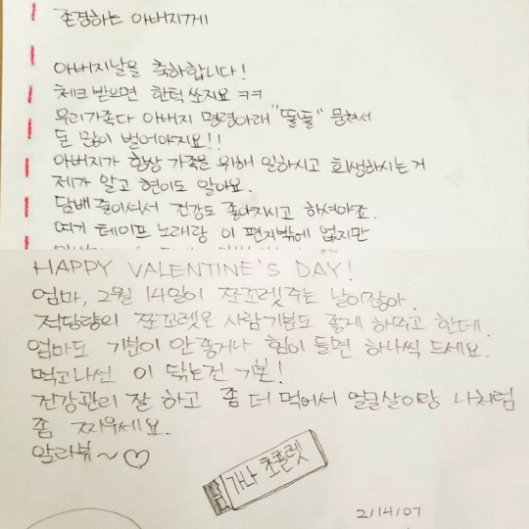 존경하는 아버지께
아버지날을 축하합니다!
체크 받으면 한턱 쏘지요 ㅋㅋ
우리가족다 아버지 명령아래 "똘똘" 뭉쳐서
돈 많이 벌어야지요!!
아버지가 항상 가족을 위해 일하시고 희생하시는거
제가 알고 현이도 알아요.
담배 줄이셔서 건강도 좋아지시고 하셔야죠.
여기 테이프 노래랑 이 편지밖에 없지만
HAPPY VALENTINE'S DAY!
엄마, 2월 14일이 쪼꼬렛주는 날이잖아.
적당량의 쪼꼬렛은 사람기분도 좋게 해주고 한데.
엄마도 기분이 안좋거나 힘이 들면 하나씩 드세요.
먹고나선 이 닦는건 기본!
건강관리 잘 하고 좀 더 먹어서 얼굴살이랑 나처럼
좀 찌우세요.
알라뷰~♡
가나 초콜렛
2/14/07